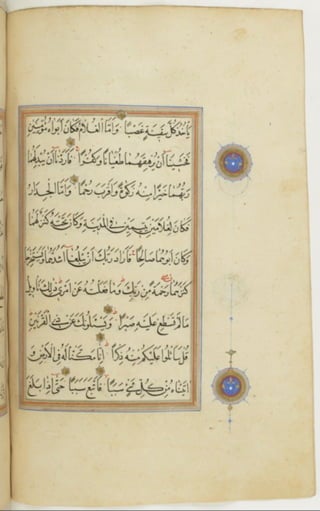 يَأْخُذُ كُلَّ سَفِينَةٍ غَصْبًا وَأَمَّا الْغُلَامُ فَكَانَ أَبَوَاهُ مُؤْمِنَيْنِ
فَخَشِينَا أَنْ يُرْهِقَهُمَا طُغْيَانًا وَكُفْرًا فَأَرَدْنَا أَنْ يُبْدِلَهُمَا
رَبُّهُمَا خَيْرًا مِنْهُ زَكٰوةً وَأَقْرَبَ رُحْمًا وَأَمَّا الْجِدَارُ
فَكَانَ لِغُلَامَيْنِ يَتِيمَيْنِ فِي الْمَدِينَةِ وَكَانَ تَحْتَهُ كَنْزٌ لَهُمَا
وَكَانَ أَبُوهُمَا صَالِحًا فَأَرَادَ رَبُّكَ أَنْ يَبْلُغَا أَشُدَّهُمَا وَيَسْتَخْرِجَا
كَنْزَهُمَا رَحْمَةً مِنْ رَبِّكَ وَمَا فَعَلْتُهُ عَنْ أَمْرِي ذٰلِكَ تَأْوِيلُ
مَا لَمْ تَسْطِعْ عَلَيْهِ صَبْرًا وَيَسْئَلُونَكَ عَنْ ذِي الْقَرْنَيْنِ
قُلْ سَأَتْلُوا عَلَيْكُمْ مِنْهُ ذِكْرًا إِنَّا مَكَّنَّا لَهُ فِي الْأَرْضِ وَ
اٰتَيْنَاهُ مِنْ كُلِّ شَيْءٍ سَبَبًا فَأَتْبَعَ سَبَبًا حَتَّى إِذَا بَلَغَ